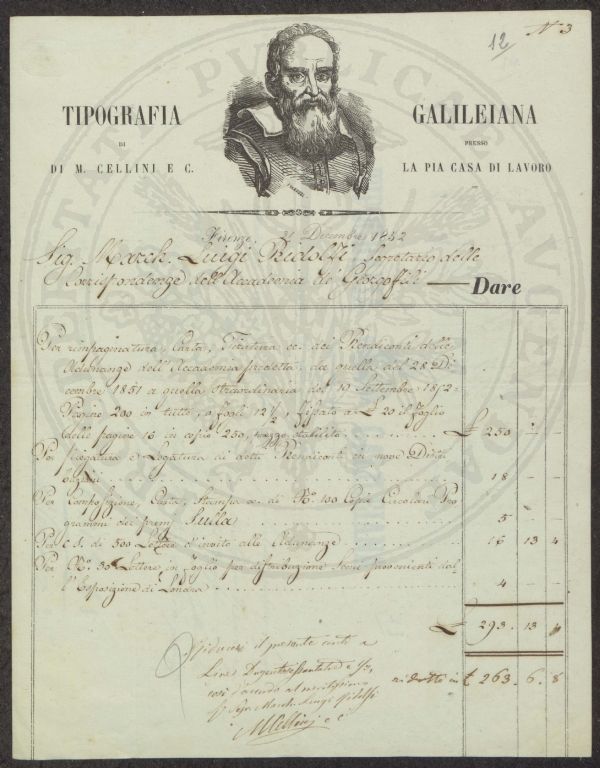 12
N 3
TIPOGRAFIA
DI
DI M. CELLINI E C.
GALILEIANA
PRESSO
LA PIA CASA DI LAVORO
Firenze, 31 Decembre 1852
Sig. March. Luigi Ridolfi Secretario delle
Corrispondenze dell'Accademia de' Georgofili — Dare
Per rimpaginatura, Carta, Tiratura ec. dei Rendiconti delle
Adunanze dell'Accademia predetta, da quella del 28 Di
cembre 1851 a quella straordinaria del 19 Settembre 1852 -
Pagine 200 in tutto, o fogli 12 ½, fissato a £ 20 il Foglio
delle pagine 16 in copie 250, prezzo stabilito . . . . . . . . £ 250 - -
Per piegatura e Legatura di detti Rendiconti in nove Distri
buzioni . . . . . . . . 18 - -
Per Composizione, Carta, Stampa ec. di N.º 100 Copie Circolari Pro
grammi dei premj . . . . . . . . 5 - -
Per C. S. di 500 Lettere d'invito alle Adunanze . . . . . . . . 16 13 4
Per N.º 50 Lettere in foglio per distribuzione Semi provenienti dal-
l'Esposizione di Londra . . . . . . . . 4 - -
£ 293 . 13 4
il presente conto a
Lire
così d'accordo al
March. Luigi Ridolfi
ridotto in £ 263 . 6 . 8
MCellini e C.